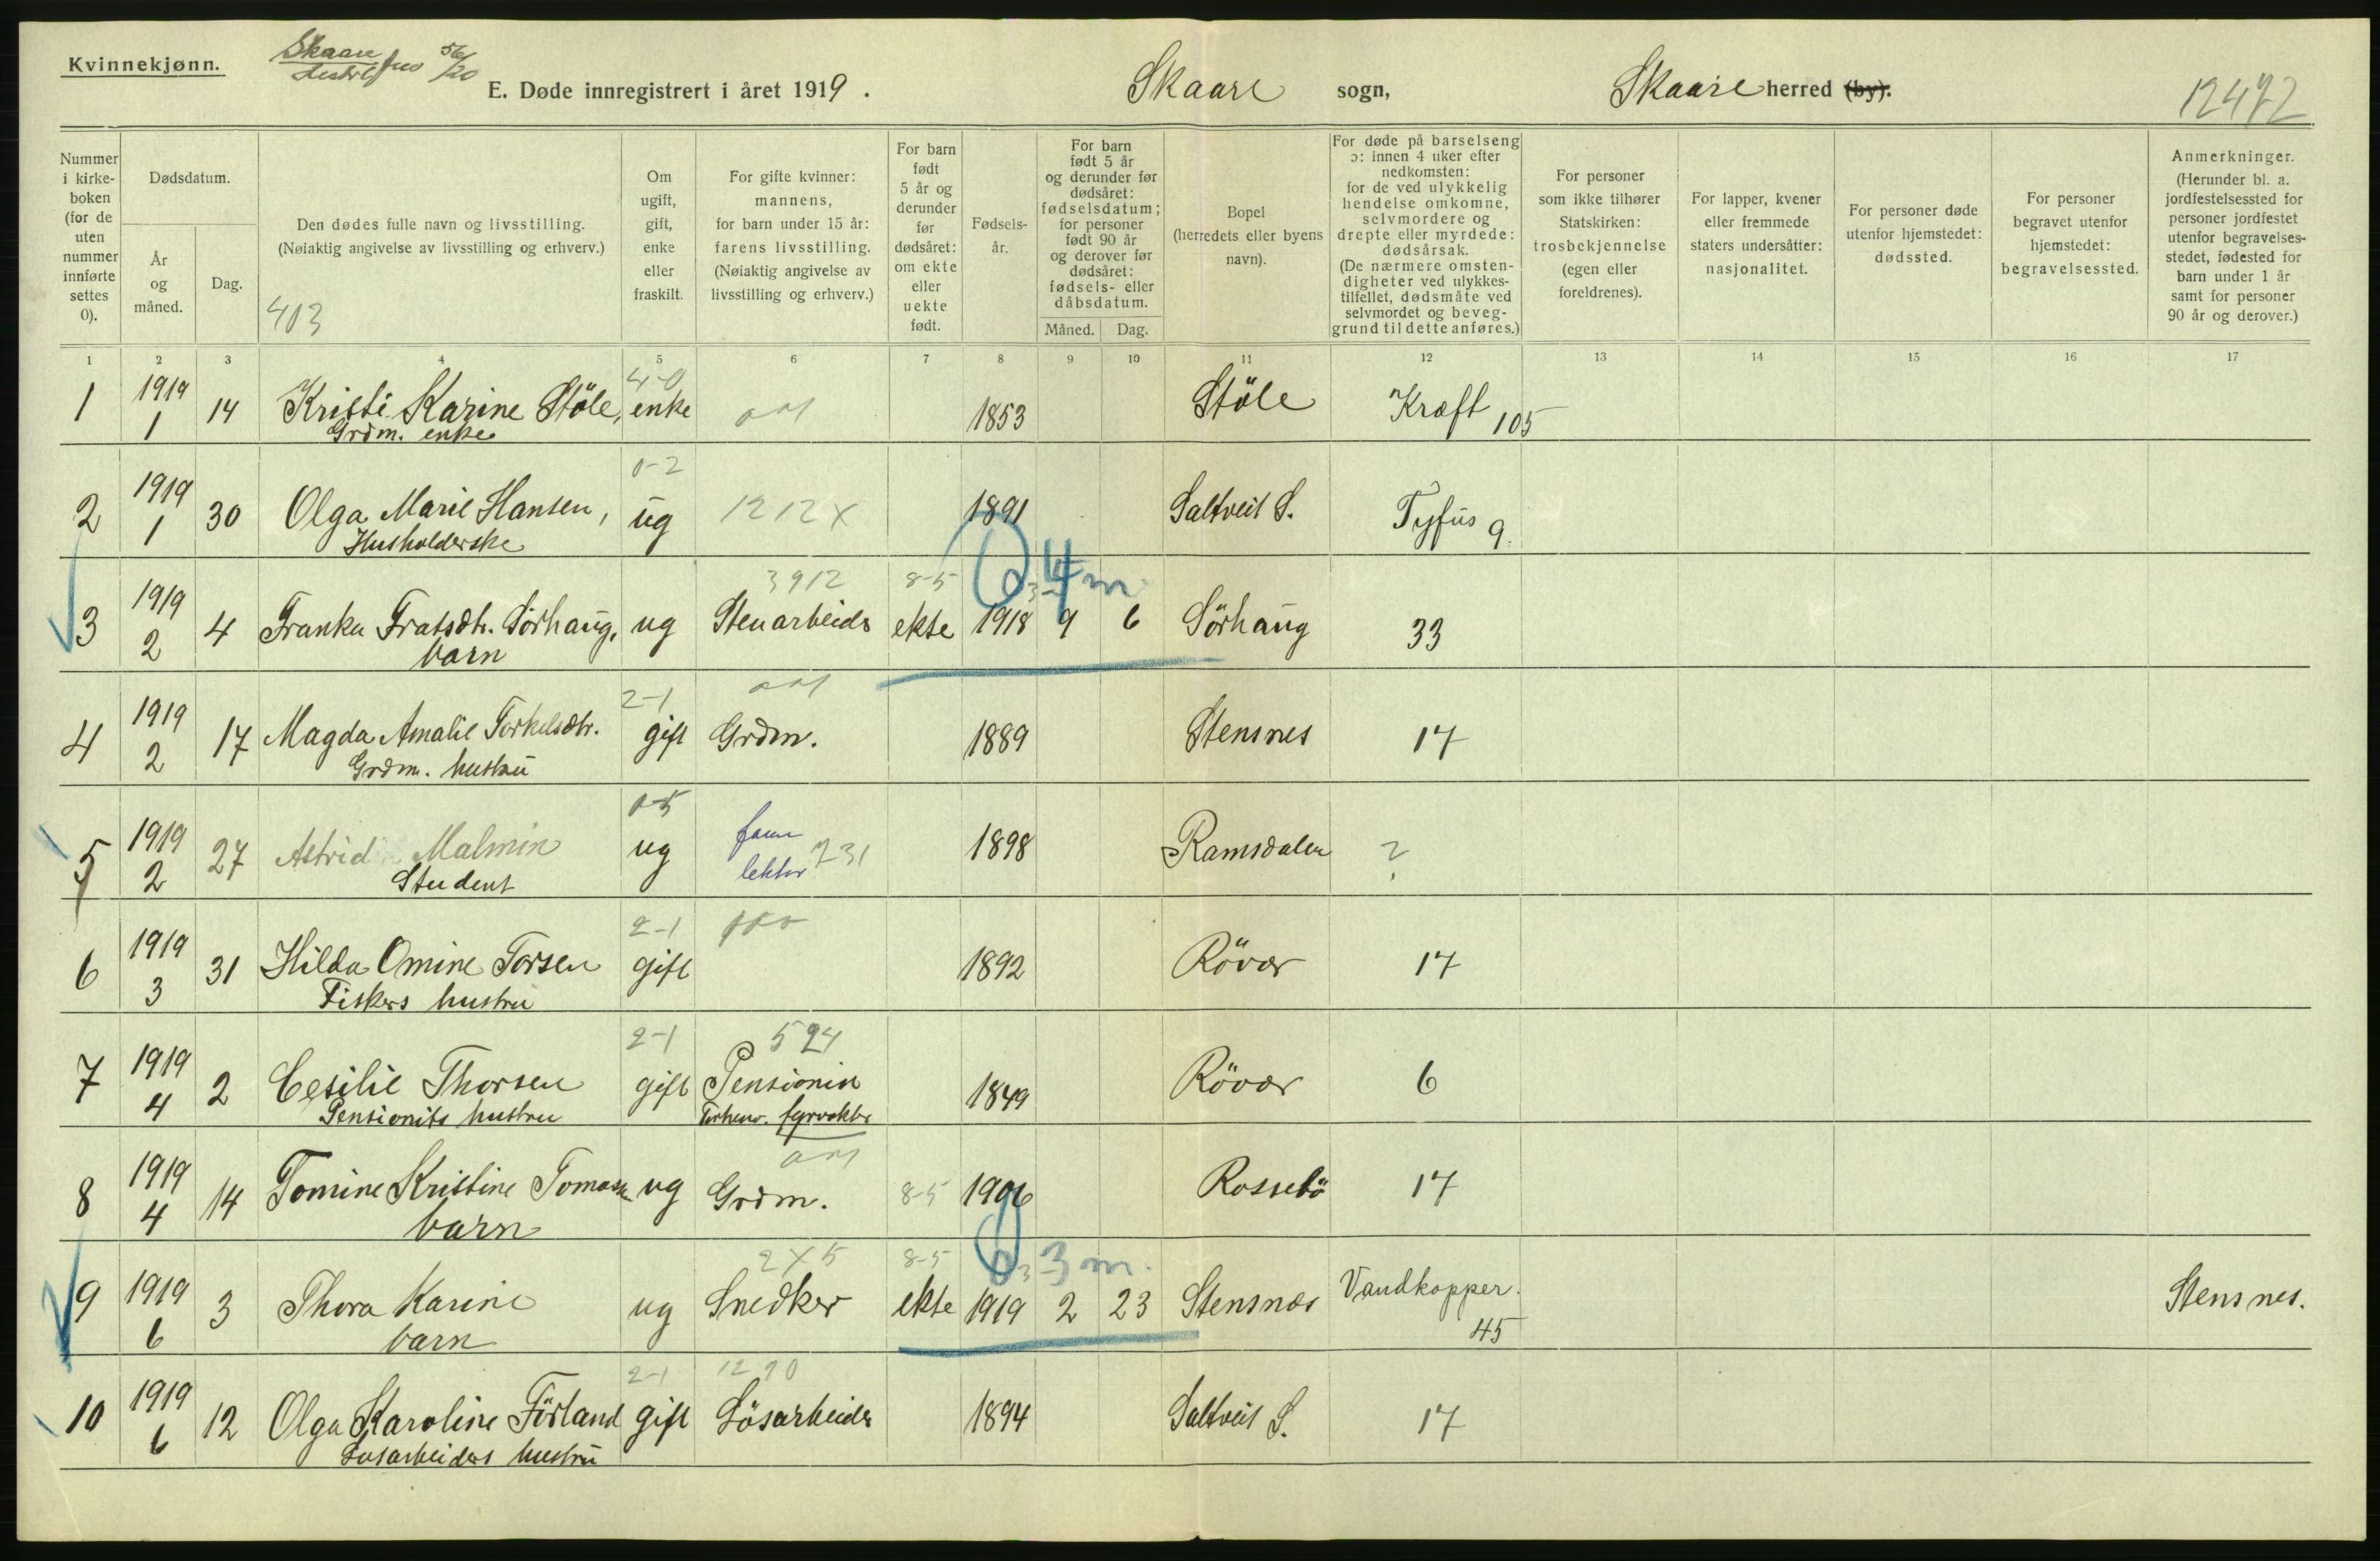 Kvinnekjønn.
Skaare
56/20
E. Døde innregistrert i året 1919. Skaare sogn, Skaare herred (by).
12472
Nummer i kirkeboken (for de uten nummer innførte settes 0).
Dødsdatum.
År og måned.
Dag.
Den dødes fulle navn og livsstilling.
(Nøiaktig angivelse av livsstilling og erhverv.)
403
Om ugift, gift, enke eller fraskilt.
For gifte kvinner: mannens, for barn under 15 år: farens livsstilling. (Nøiaktig angivelse av livsstilling og erhverv.)
For barn født 5 år og derunder før dødsåret: om ekte eller uekte født.
Fødselsår.
For barn født 5 år og derunder før dødsåret: fødselsdatum; for personer født 90 år og derover før dødsåret: fødsels- eller dåbsdatum.
Måned. Dag.
Bopel (herredets eller byens navn).
For døde på barselseng ɔ: innen 4 uker efter nedkomsten: for de ved ulykkelig hendelse omkomne, selvmordere og drepte eller myrdede: dødsårsak. (De nærmere omstendigheter ved ulykkestilfellet, dødsmåte ved selvmordet og beveggrund til dette anføres.)
For personer som ikke tilhører Statskirken: trosbekjennelse (egen eller foreldrenes).
For lapper, kvener eller fremmede staters undersåtter: nasjonalitet.
For personer døde utenfor hjemstedet: dødssted.
For personer begravet utenfor hjemstedet: begravelsessted.
Anmerkninger. (Herunder bl. a. jordfestelsessted for personer jordfestet utenfor begravelsesstedet, fødested for barn under 1 år samt for personer 90 år og derover.)
1 2 3 4 5 6 7 8 9 10 11 12 13 14 15 16 17
4-0
1 1919 1 14 Kristi Karine Stöle, enke 1853 Stöle Kræft 105
Grdm. enke
0-2
2 1919 1 30 Olga Marie Hansen, ug 1212x 1891 Saltveit S. Tyfus 9.
Husholderske
3912 8-5 4 m
3 1919 2 4 Franka Fratsdtr. Sörhaug, ug Stenarbeider ekte 1918 9 6 Sörhaug 33
barn
2-1
4 1919 2 17 Magda Amalie Torkelsdtr. gift Grdm. 1889 Stensnes 17
Grdm. hustru
0-5
5 1919 2 27 Astrid Malmin ug lektor 731 1898 Ramsdalen ?
Student
2-1
6 1919 3 31 Hilda Omine Torsen gift 1892 Rövær 17
Fiskers hustru
2-1 524
7 1919 4 2 Cesilie Thorsen gift Pensionist 1849 Rövær 6
Pensionists hustru forhenv. fyrvokter
8 1919 4 14 Tomine Kristine Tomass ug Grdm. 8-5 1906 Rossebö 17
barn
2x5 8-5 3 m.
9 1919 6 3 Thora Karine ug Snedker ekte 1919 2 23 Stensnæs Vandkopper. 45 Stensnes.
barn
2-1 1290
10 1919 6 12 Olga Karoline Förland gift Lösarbeider 1894 Saltveit S. 17
Lösarbeiders hustru